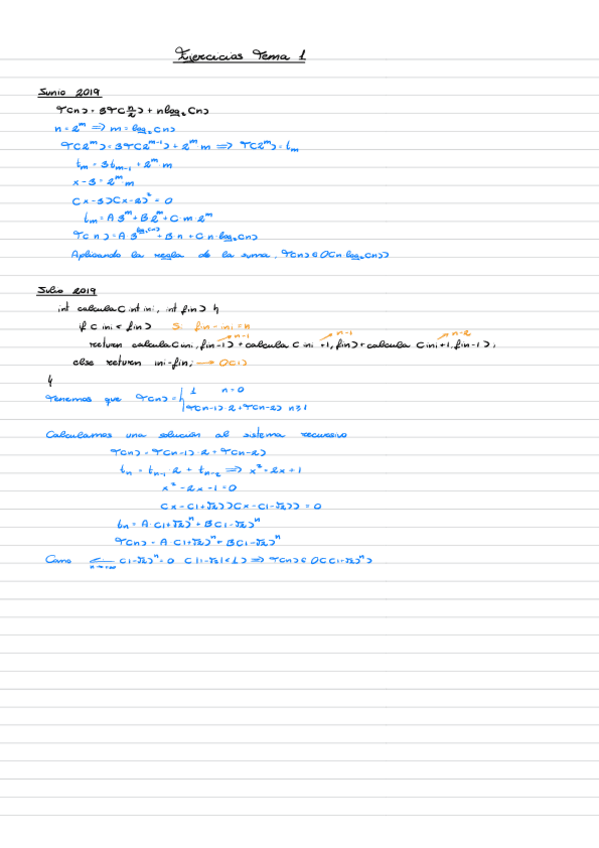 Ejercicios Tema 1
Junio 2019
T(n) = 3T(n/2) + n log₂(n)
n = 2^m ⟹ m = log₂(n)
T(2^m) = 3T(2^(m-1)) + 2^m m ⟹ T(2^m) = t_m
t_m = 3t_(m-1) + 2^m m
x - 3 = 2^m m
(x-3)(x-2)² = 0
t_m = A 3^m + B 2^m + C m 2^m
T(n) = A 3^(log₂(n)) + B n + C n log₂(n)
Aplicando la regla de la suma, T(n) ∈ O(n log₂(n))
Julio 2019
int calcula(int ini, int fin) {
if (ini < fin) Si fin - ini = n
n-1 n-1 n-2
return calcula(ini, fin-1) + calcula(ini+1, fin) + calcula(ini+1, fin-1);
else return ini-fin; → O(1)
}
Tenemos que T(n) = { 1 n = 0
T(n-1)·2 + T(n-2) n ≥ 1
Calculamos una solución al sistema recursivo
T(n) = T(n-1)·2 + T(n-2)
t_n = t_(n-1)·2 + t_(n-2) ⟹ x² = 2x + 1
x² - 2x - 1 = 0
(x - (1+√2))(x - (1-√2)) = 0
t_n = A·(1+√2)^n + B(1-√2)^n
T(n) = A·(1+√2)^n + B(1-√2)^n
Como (1-√2)^n = 0 (|1-√2| < 1) ⟹ T(n) ∈ O((1-√2)^n)